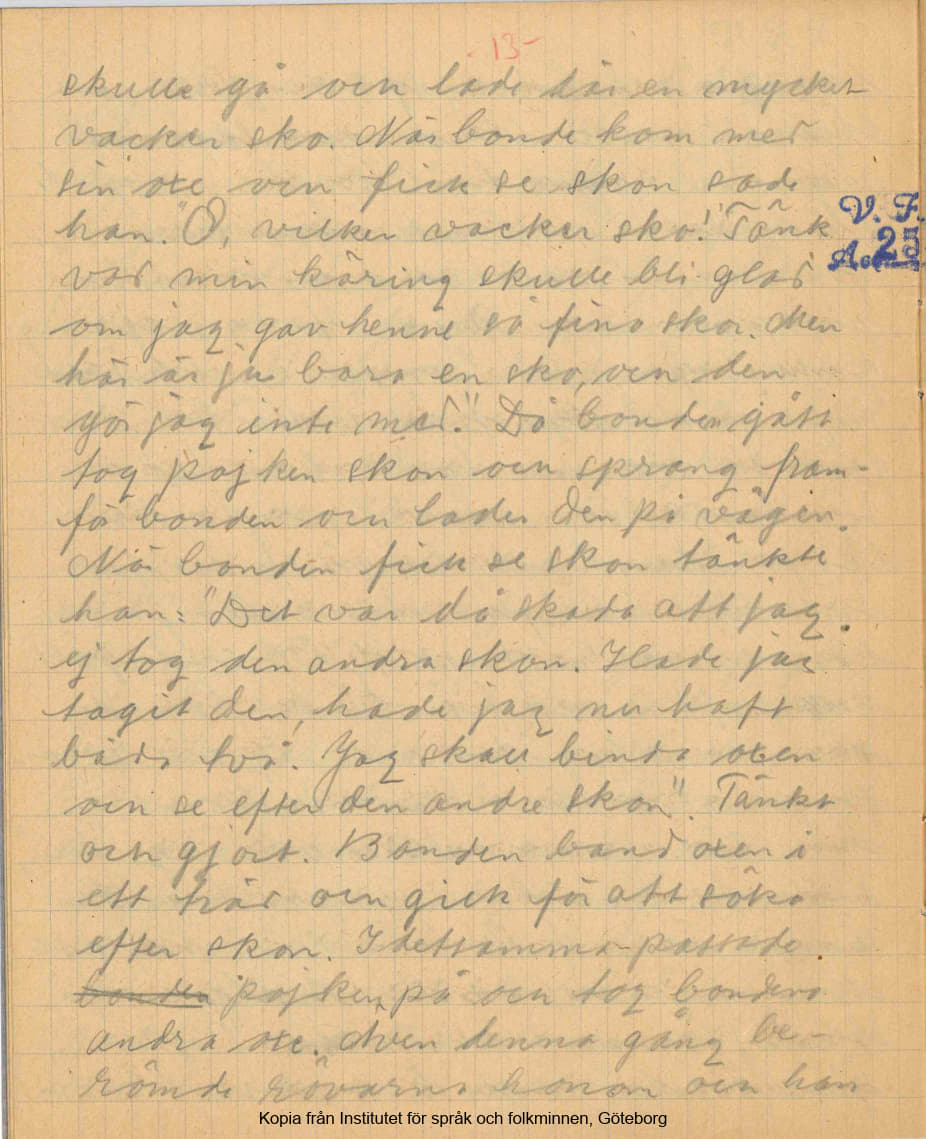 -13-
skulle gå och lade där en mycket
vacker sko. När bonde kom med
sin oxe och fick se skon sade
han. "O, vilken vacker sko! Tänk
V. F.
vad min käring skulle bli glad
om jag gav henne så fina skor. Men
här är ju bara en sko, och den
gör jag inte med." Då bonden gått
tog pojken skon och sprang fram-
för bonden och lade den på vägen.
När bonden fick se skon tänkte
han: "Det var då skada att jag
ej tog den andra skon. Hade jag
tagit den, hade jag nu haft
båda två. Jag skall binda oxen
och se efter den andre skon". Tänkt
och gjort. Bonden band oxen i
ett träd och gick för att söka
efter skon. I detsamma passade
bonden pojken på och tog bondens
andra oxe. Även denna gång be-
römde rövarna honom och han
Kopia från Institutet för språk och folkminnen, Göteborg